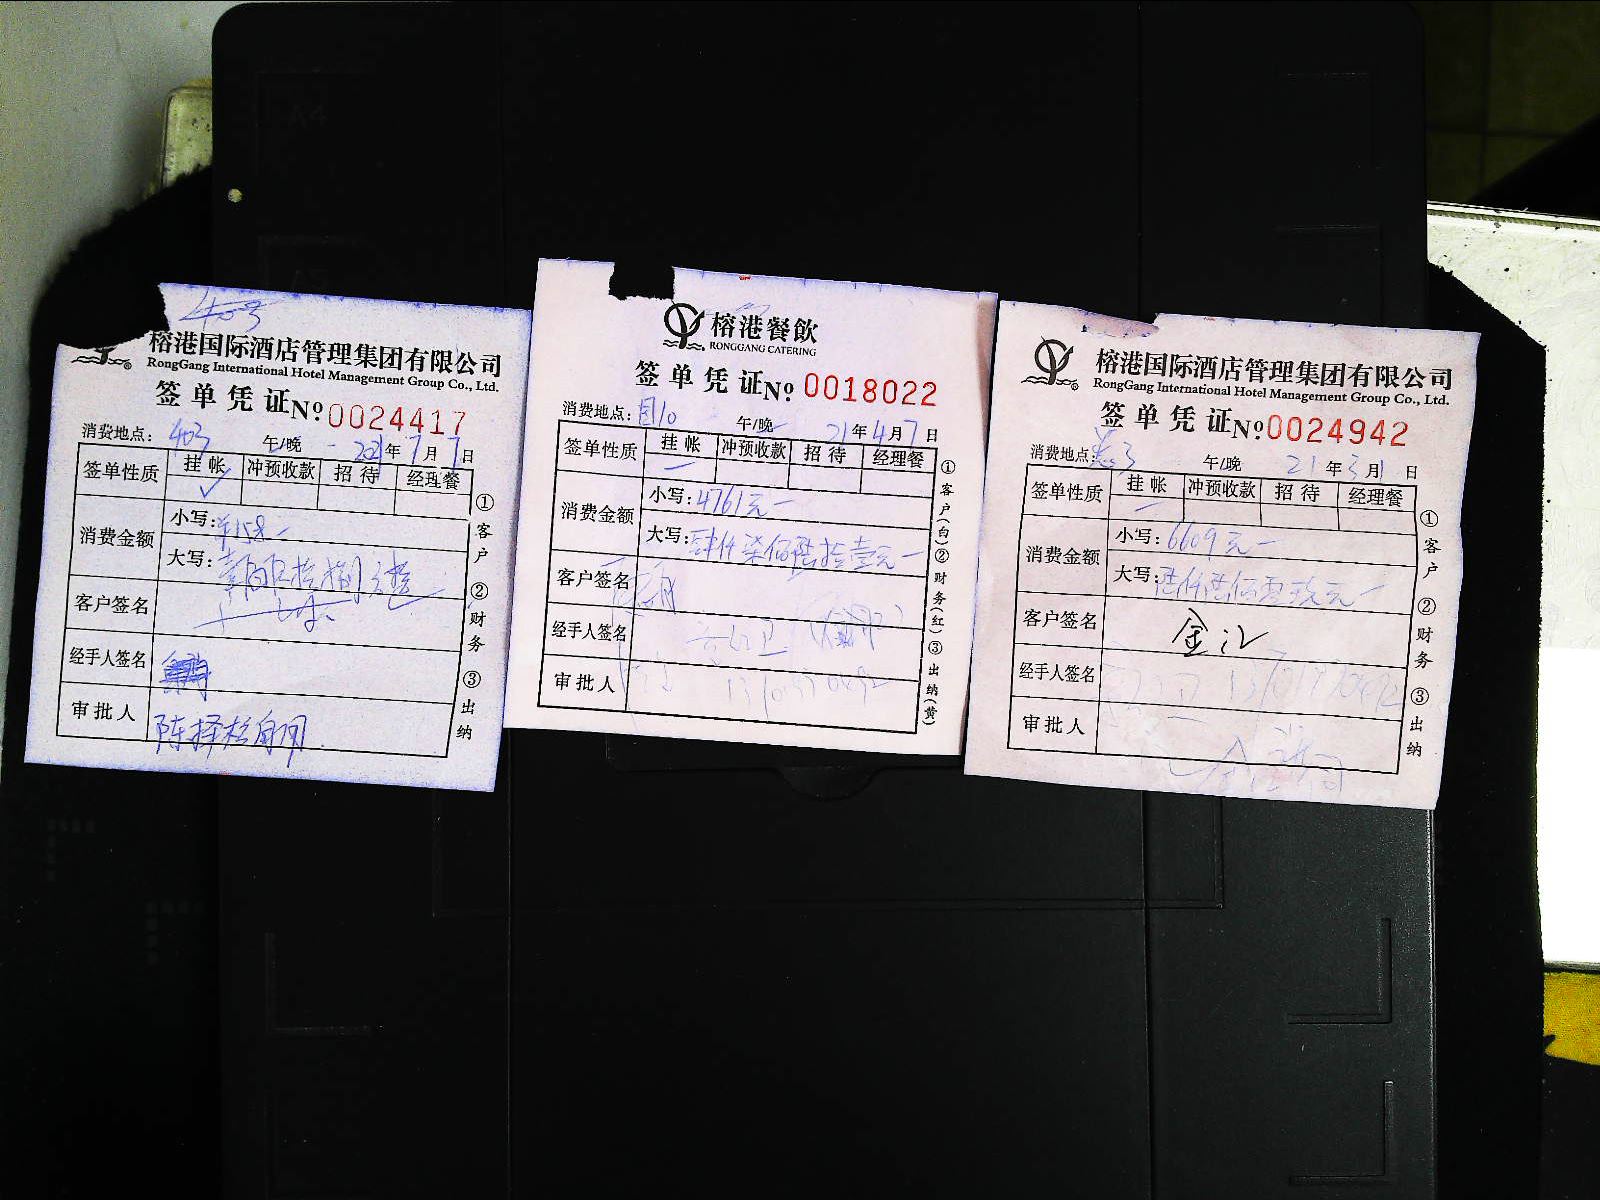 403
榕港国际酒店管理集团有限公司
RongGang International Hotel Management Group Co., Ltd.
签单凭证 № 0024417
消费地点: 403 午/晚 年 7 月 7 日
签单性质 挂帐 冲预收款 招待 经理餐
✓
消费金额 小写: ¥158
大写:
客户签名
经手人签名
审批人
① 客户 ② 财务 ③ 出纳
榕港餐飲
RONGGANG CATERING
签单凭证 № 0018022
消费地点: 午/晚 21 年 4 月 7 日
签单性质 挂帐 冲预收款 招待 经理餐
消费金额 小写: 4761元
大写: 肆仟柒佰陆拾壹元
客户签名
经手人签名
审批人
① 客户(白) ② 财务(红) ③ 出纳(黄)
榕港国际酒店管理集团有限公司
RongGang International Hotel Management Group Co., Ltd.
签单凭证 № 0024942
消费地点: 午/晚 21 年 3 月 1 日
签单性质 挂帐 冲预收款 招待 经理餐
消费金额 小写: 6609元
大写: 陆仟陆佰零玖元
客户签名
经手人签名
审批人
① 客户 ② 财务 ③ 出纳